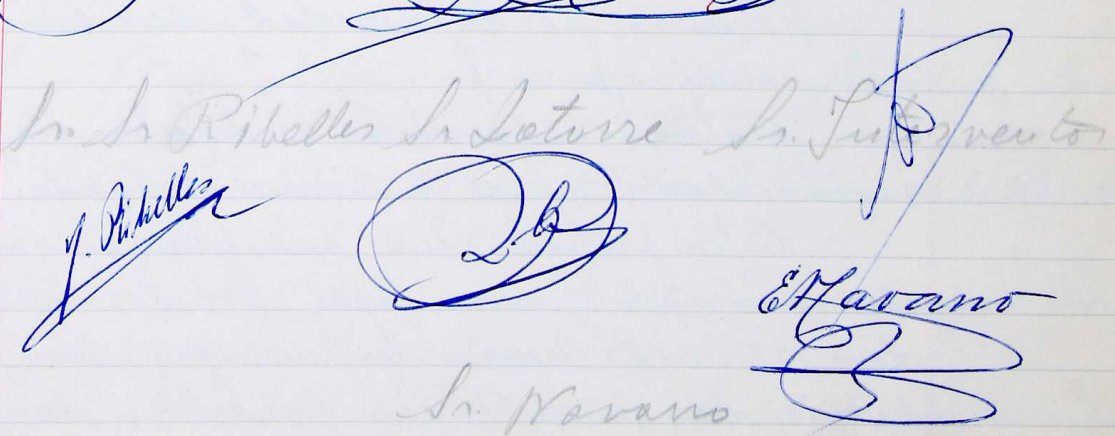 Sr. Sr Ribelles Sr Latorre Sr. Interventor
J. Ribelles
E Navarro
Sr. Navarro